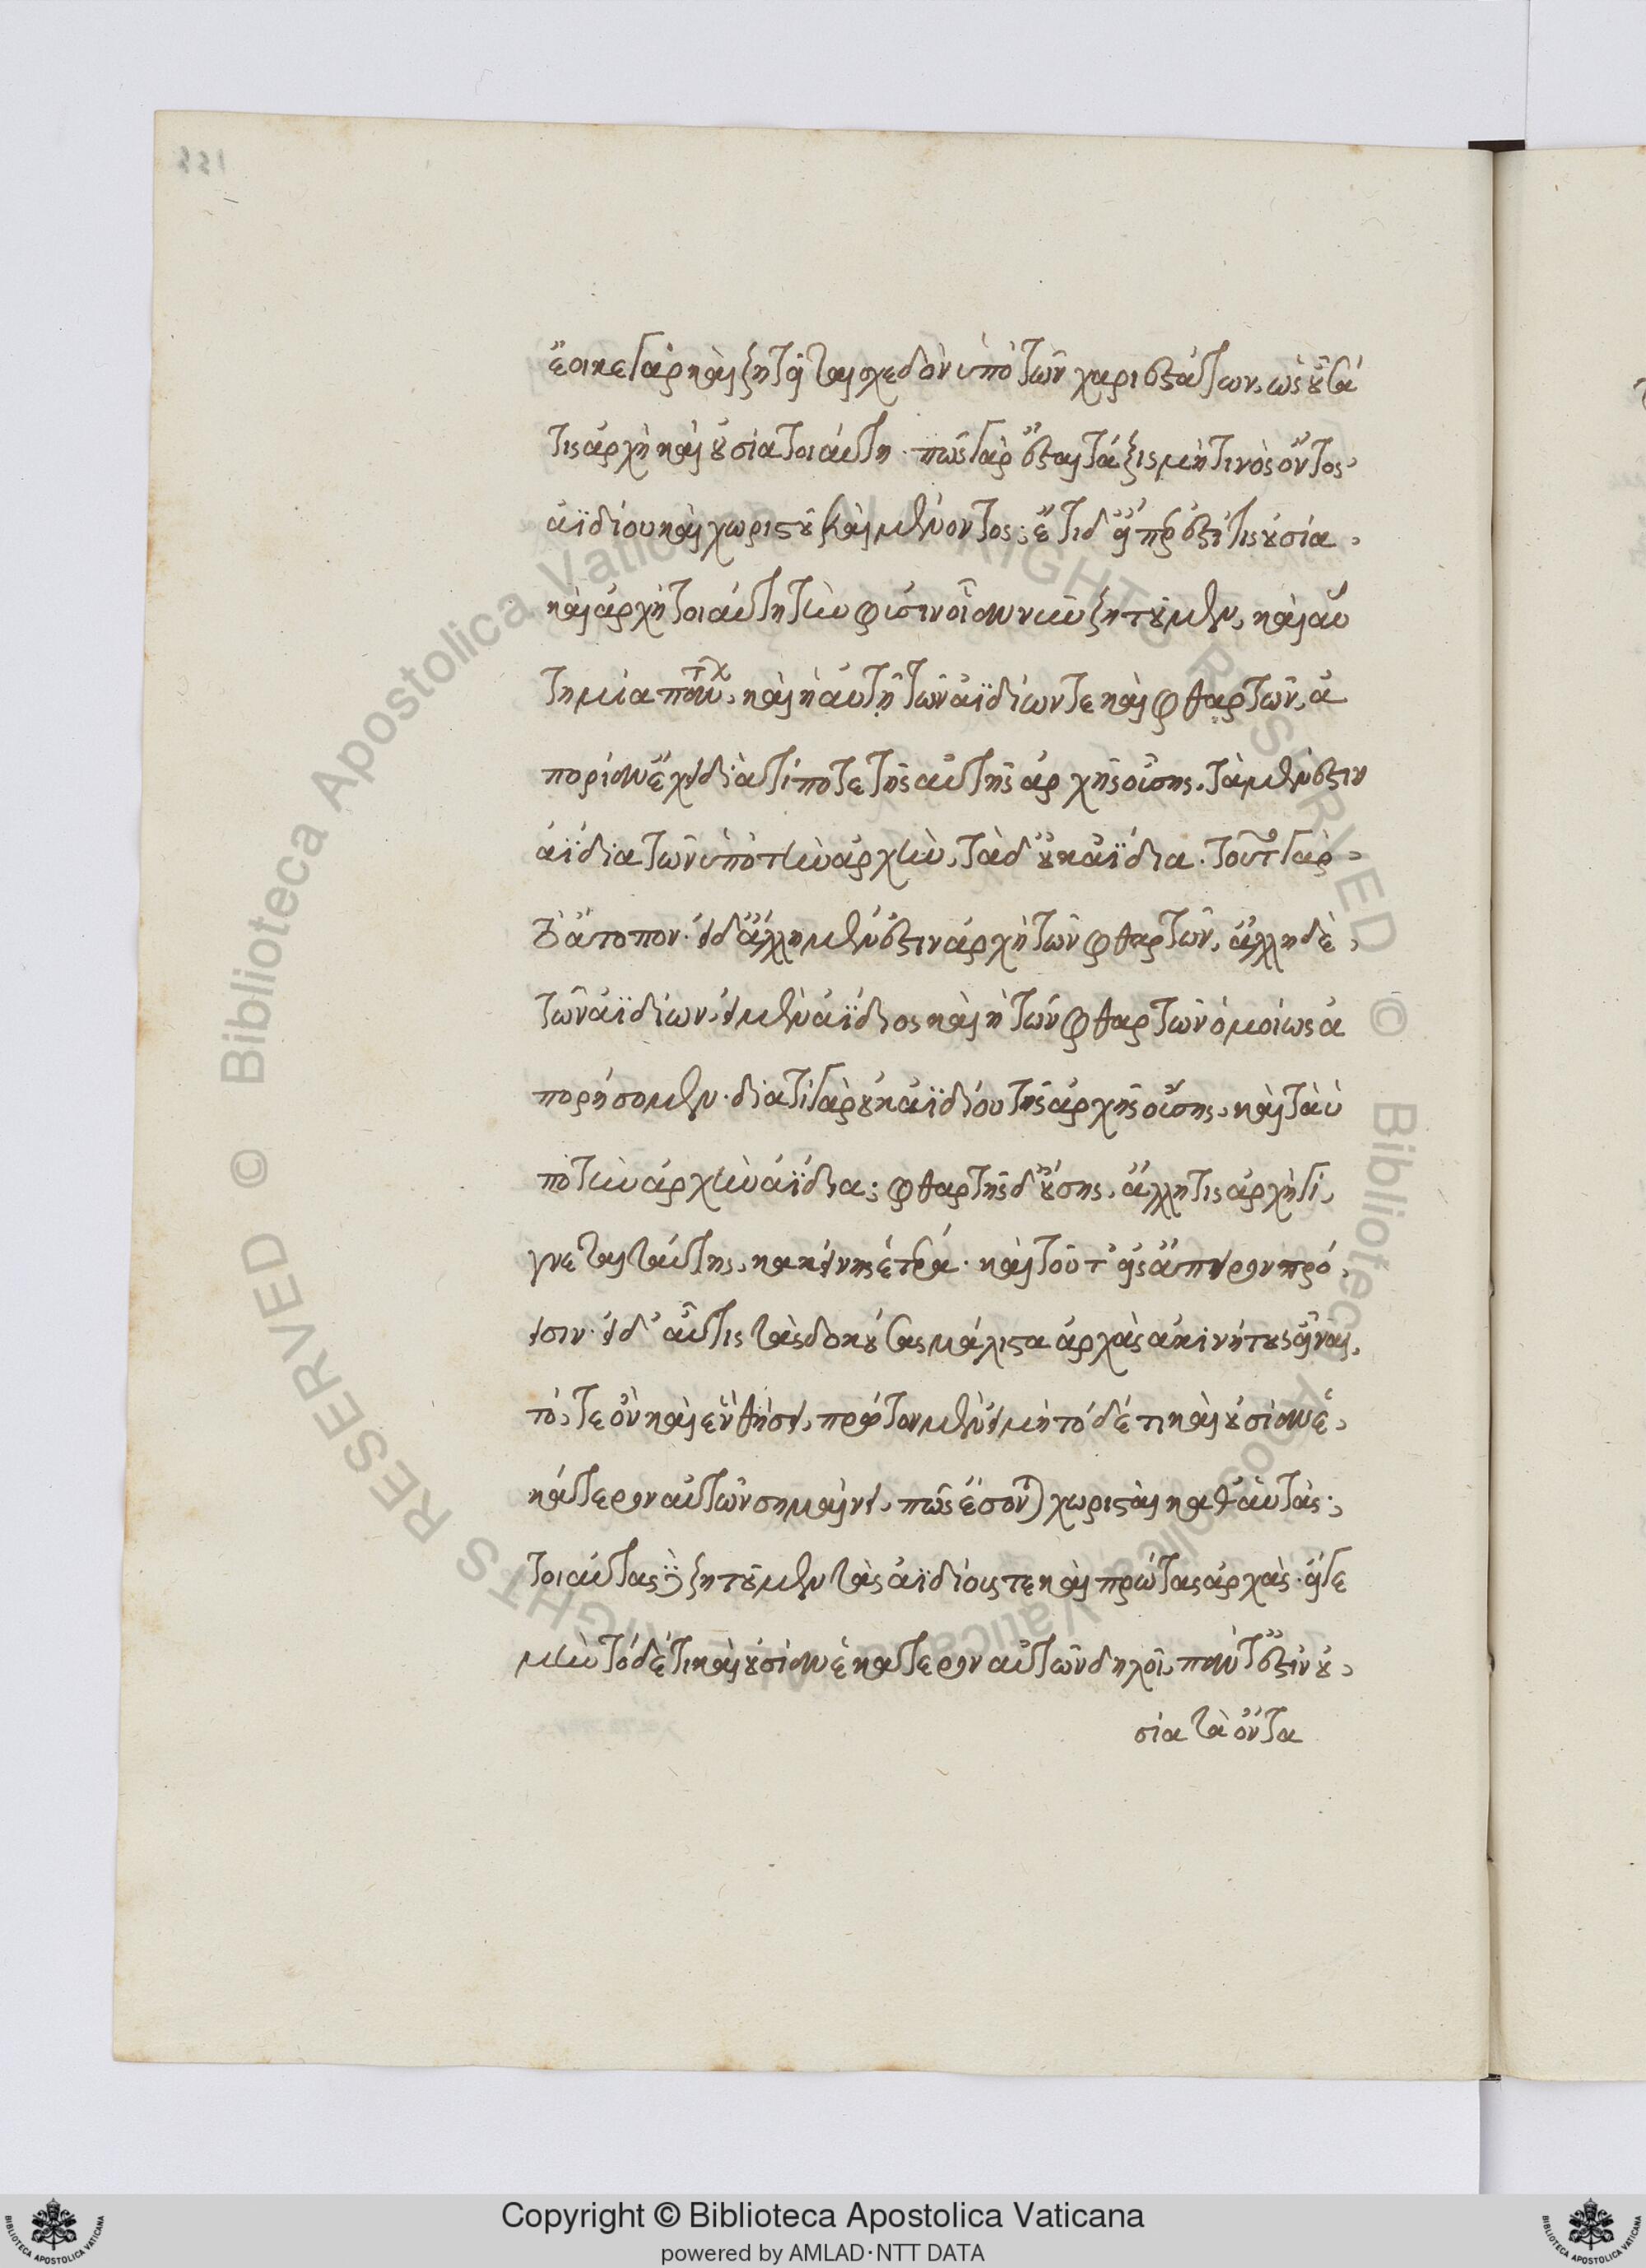 331
ἔοικε γὰρ καὶ ζητεῖται σχεδὸν ὑπὸ τῶν χαριεστάτων, ὡς οὖσά
τις ἀρχὴ καὶ οὐσία τοιαύτη. πῶς γὰρ ἔσται τάξις μή τινος ὄντος
ἀϊδίου καὶ χωριστοῦ καὶ μένοντος; ἔτι δ' εἴπερ ἐστί τις οὐσία
καὶ ἀρχὴ τοιαύτη τὴν φύσιν οἵαν νῦν ζητοῦμεν, καὶ αὕ
τη μία πάντων, καὶ ἡ αὐτὴ τῶν ἀϊδίων τε καὶ φθαρτῶν, ἀ
πορίαν ἔχει διὰ τί ποτε τῆς αὐτῆς ἀρχῆς οὔσης, τὰ μέν ἐστιν
ἀΐδια τῶν ὑπὸ τὴν ἀρχὴν, τὰ δ' οὐκ ἀΐδια. τοῦτο γὰρ
ἄτοπον. εἰ δ' ἄλλη μέν ἐστιν ἀρχὴ τῶν φθαρτῶν, ἄλλη δὲ
τῶν ἀϊδίων, εἰ μὲν ἀΐδιος καὶ ἡ τῶν φθαρτῶν ὁμοίως ἀ
πορήσομεν. διὰ τί γὰρ οὐκ ἀϊδίου τῆς ἀρχῆς οὔσης, καὶ τὰ ὑ
πὸ τὴν ἀρχὴν ἀΐδια; φθαρτῆς δ' οὔσης, ἄλλη τις ἀρχὴ γί
γνεται ταύτης, κἀκείνης ἑτέρα. καὶ τοῦτ' εἰς ἄπειρον πρό
εισιν. εἰ δ' αὖ τις τὰς δοκούσας μάλιστα ἀρχὰς ἀκινήτους εἶναι,
τό, τε ὂν καὶ ἓν θήσει, πρῶτον μὲν εἰ μὴ τόδέ τι καὶ οὐσίαν ἑ
κάτερον αὐτῶν σημαίνει, πῶς ἔσονται χωρισταὶ καθ' αὑτάς;
τοιαύτας δὲ ζητοῦμεν τὰς ἀϊδίους τε καὶ πρώτας ἀρχὰς. εἴγε
μὴν τόδέ τι καὶ οὐσίαν ἑκάτερον αὐτῶν δηλοῖ, πάντ' ἐστὶν οὐ
σία τὰ ὄντα
Copyright © Biblioteca Apostolica Vaticana
powered by AMLAD·NTT DATA